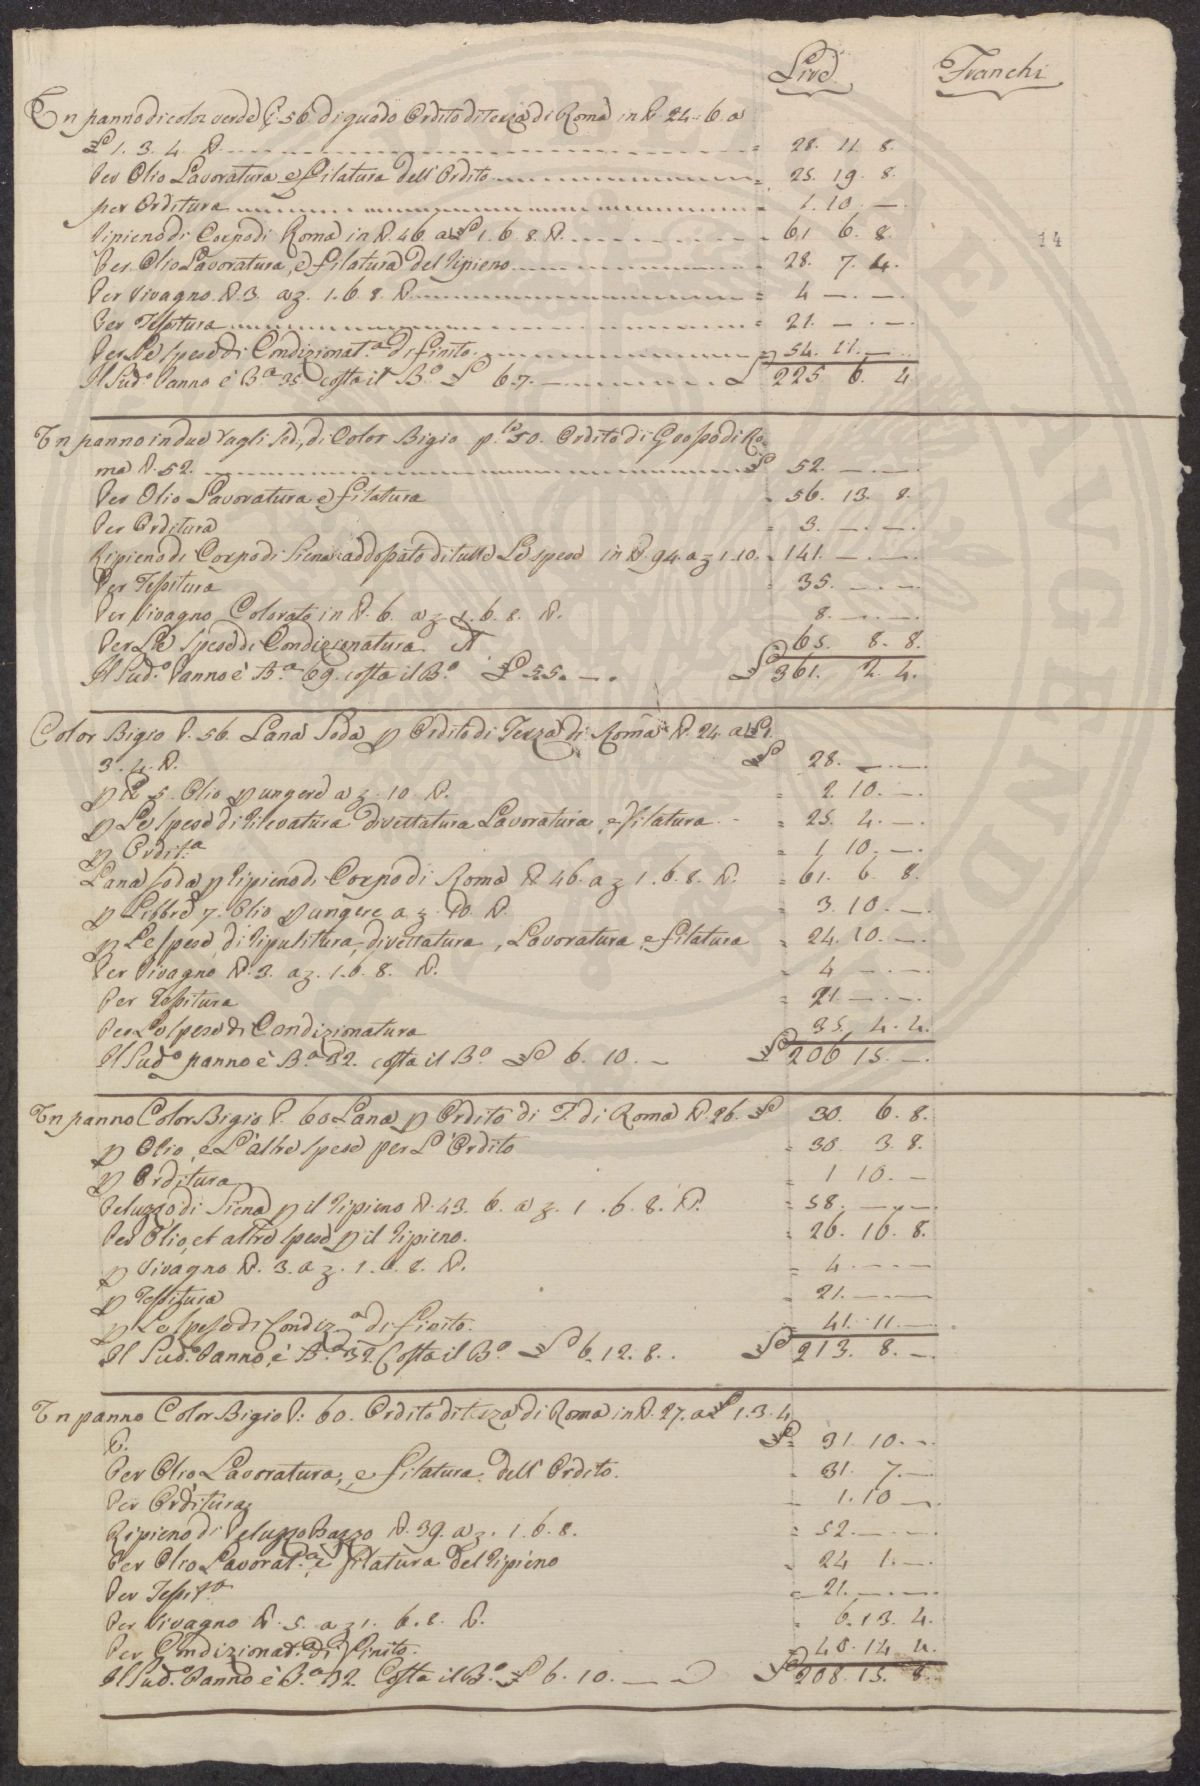 Lire Franchi
Un panno di color verde P. 56 di guado Ordito di terza di Roma in ℔. 24. 6. a
£ 1. 3. 4. ℔. = 28. 11. 8.
Per Olio Lavoratura e filatura dell'Ordito = 25. 19. 8.
per Orditura = 1. 10. —
ripieno di Corpo di Roma in ℔. 46 a £ 1. 6. 8. ℔. = 61 6. 8.
Per Olio Lavoratura, e filatura del ripieno = 28. 7. 4.
Per Vivagno ℔. 3. a z. 1. 6. 8. ℔ = 4 — . —
Per Tessitura = 21. — . —
Per Le spese di Condizionat.ª di finito = 54. 11. —
Il Sud.º Panno è B.ª 35 costa il B.º £ 6. 7. — £ 225 6. 4
14
Un panno in due tagli di Color Bigio p. 50. Ordito di Grosso di Ro-
ma ℔. 52. £ 52. — . —
Per Olio Lavoratura e filatura = 56. 13. 8.
Per Orditura = 3. — . —
Ripieno di Corpo di Siena addossato di tutte Le spese in ℔. 94. a z 1. 10. = 141. — . —
Per Tessitura = 35. — . —
Per Vivagno Colorato in ℔. 6. a z. 1. 6. 8. ℔. 8. — . —
Per Le Spese di Condizionatura 65. 8. 8.
Il Sud.º Panno è B.ª 69. costa il B.º £ 5.5. — . £ 361. 2. 4.
Color Bigio P. 56. Lana Soda p Ordito di Terza di Roma ℔. 24. a £ 1.
3. 4. ℔. £ 28. — . —
p ℔ 5. Olio p ungere a z. 10 ℔. = 2. 10. —
p Le spese di rilevatura divettatura Lavoratura, e filatura = 25. 4. —
p Ordit.ª = 1 10. —
Lana soda p ripieno di Corpo di Roma ℔ 46. a z 1. 6. 8. ℔. = 61. 6 8.
p Libbre 7. Olio p ungere a z. 10 ℔. = 3. 10. —
p Le spese di ripulitura, divettatura, Lavoratura, e filatura = 24. 10. —
Per Vivagno ℔. 3. a z. 1. 6. 8. ℔. = 4 — . —
Per Tessitura = 21 — . —
Per Le spese di Condizionatura 35. 4. 4.
Il Sud.º panno è B.ª 32. costa il B.º £ 6. 10. — £ 206 15. —
Un panno Color Bigio P. 60 Lana p Ordito di T. di Roma ℔. 26. £ 30. 6. 8.
p Olio, e L'altre spese per L'Ordito = 30. 3. 8.
p Orditura = 1 10. —
Peluzzo di Siena p il ripieno ℔. 43. 6. a z. 1. 6. 8. ℔. = 58. — . —
Per Olio, et altre spese p il ripieno. = 26. 16. 8.
p Vivagno ℔. 3. a z. 1. 6. 8. ℔. = 4. — . —
p Tessitura = 21. — . —
p Le spese di Condiz.ª di finito. = 41. 11. —
Il Sud.º Panno, è B.ª 32. Costa il B.º £ 6. 12. 8. £ 213. 8. —
Un panno Color Bigio P: 60. Ordito di terza di Roma in ℔. 27. a £ 1. 3. 4
℔. £ 31. 10. —
Per Olio Lavoratura, e filatura dell'Ordito. = 31. 7. —
Per Orditura = 1. 10 —
Ripieno di Peluzzo ℔. 39. a z. 1. 6. 8. = 52. — . —
Per Olio Lavorat.ª e filatura del ripieno = 24 1. —
Per Tessit.ª = 21. — . —
Per Vivagno ℔. 5. a z 1. 6. 8. ℔. = 6. 13. 4.
Per Condizionat.ª di finito. 40. 14 4.
Il Sud.º Panno è B.ª 32. Costa il B.º £ 6. 10. — £ 208. 15. 8.